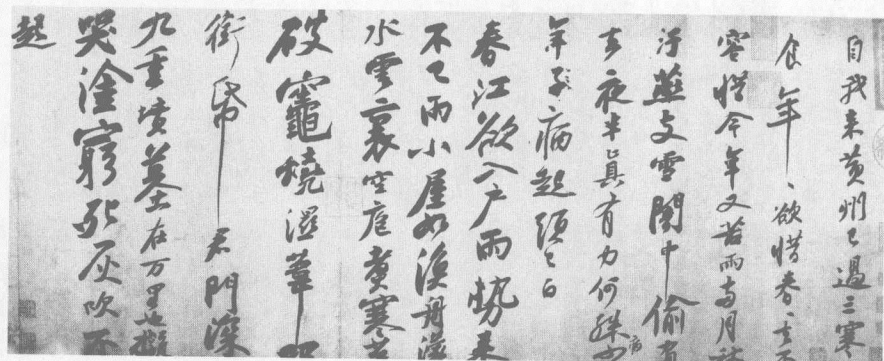 自我来黄州已過三寒
食年〻欲惜春〻去不
容惜今年又苦雨兩月秋
汙燕支雪闇中偷負
去夜半真有力何殊病少
年子病起須已白
春江欲入户雨勢来
不已雨小屋如漁舟濛
水雲裏空庖煑寒菜
破竈燒濕葦那
銜帋君門深
九重墳墓在万里也擬
哭塗窮死灰吹不
起